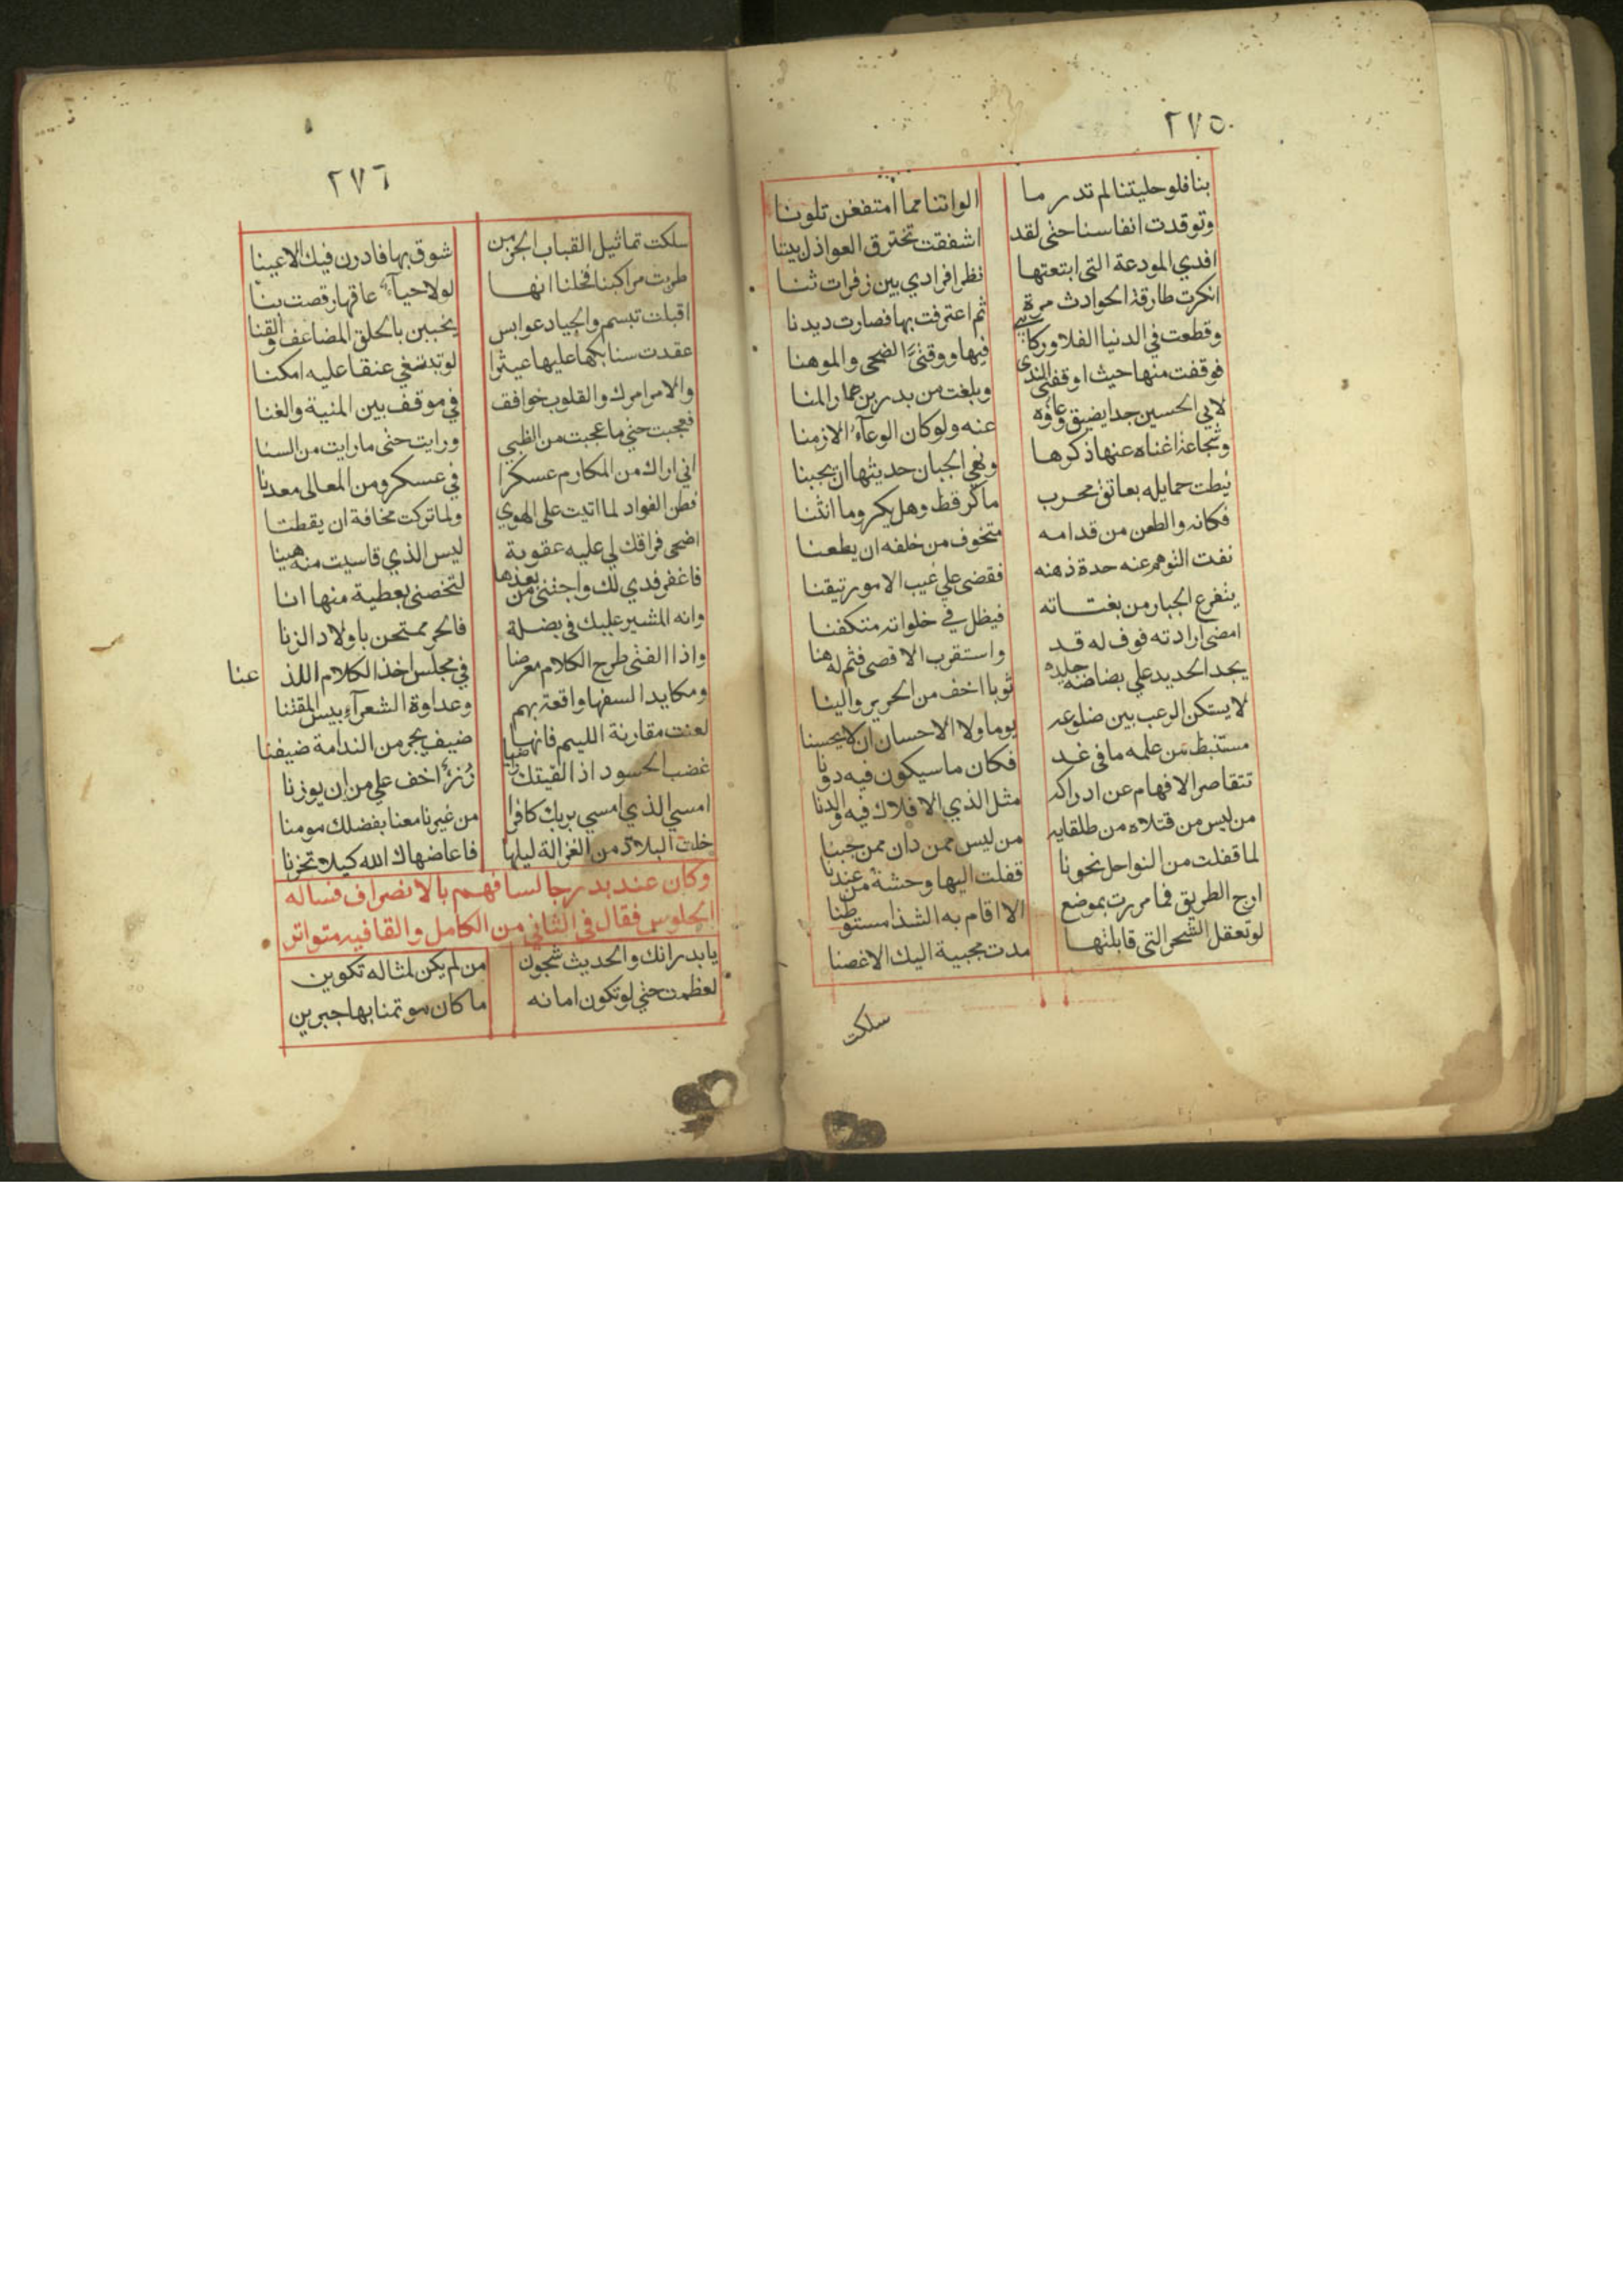 ٢٧٥
بنا فلو حليتنا لم تدر ما الواننا مما امتقعن تلونا
وتوقدت انفاسنا حتى لقد اشفقت تحترق العواذل بيننا
افدي المودعة التى ابتعتها نظرا فرادي بين زفرات ثنا
انكرت طارقة الحوادث مرة ثم اعترفت بها فصارت ديدنا
وقطعت في الدنيا الفلا وركائبي فيها ووقتيّ الضحى والموهنا
فوقفت منها حيث اوقفنى الندى وبلغت من بدر بن عمار المنا
لابي الحسين جدا يضيق وعاؤه عنه ولو كان الوعآءُ الازمنا
وشجاعة اغناه عنها ذكرها ونهي الجبان حديثها ان يجبنا
نيطت حمايله بعاتق محرب ما كر قط وهل يكر وما انثنا
فكانه والطعن من قدامه متخوف من خلفه ان يطعنا
نفت التوهم عنه حدة ذهنه فقضى علي غيب الامور تيقنا
يتفزع الجبار من بغتاته فيظل في خلواته متكفنا
امضى ارادته فوف له قد واستقرب الاقصى فثم له هنا
يجد الحديد علي بضاضة جلده ثوبا اخف من الحرير والينا
لا يستكن الرعب بين ضلوعه يوما ولا الاحسان ان لا يحسنا
مستنبط من علمه ما فى غد فكان ما سيكون فيه دونا
تتقاصر الافهام عن ادراكه مثل الذي الافلاك فيه والدنا
من ليس من قتلاه من طلقايه من ليس ممن دان ممن حينا
لما قفلت من السواحل نحونا قفلت اليها وحشة من عندنا
ارج الطريق فما مررت بموضع الا اقام به الشذا مستوطنا
لو تعقل الشجر التى قابلتها مدت مجيبة اليك الاغصنا
سلكت
٢٧٦
سلكت تماثيل القباب الجن من شوق بها فادرن فيك الاعينا
طربت مراكبنا فخلنا انها لولا حيآء عاقها رقصت بنا
اقبلت تبسم والجياد عوابس يخببن بالحلق المضاعف والقنا
عقدت سنابكها عليها عيثرا لو تبتغي عنقا عليه امكنا
والامر امرك والقلوب خوافق في موقف بين المنية والغنا
فعجبت حتي ما عجبت من الظبي ورايت حتى ما رايت من السنا
اني اراك من المكارم عسكرا في عسكر ومن المعالى معدنا
فطن الفواد لما اتيت على الهوي ولما تركت مخافة ان يفطنا
اضحى فراقك لي عليه عقوبة ليس الذي قاسيت منه هينا
فاغفر فدي لك واحبنى من بعدها لتخصنى بعطية منها انا
وانه المشير عليك فى بضلة فالحر ممتحن باولاد الزنا
واذا الفتى طرح الكلام معرضا في مجلس اخذ الكلام اللذ عنا
ومكايد السفها واقعة بهم وعداوة الشعرآء بيس المقتنا
لعنت مقارنة الليم فانها ضيف يجر من الندامة ضيفنا
غضب الحسود اذا لقيتك راضيا رُزءٌ اخف علي من ان يوزنا
امسي الذي امسي بربك كافرا من غيرنا معنا بفضلك مومنا
خلت البلاد من الغزالة ليلها فاعاضهاك الله كيلا تحزنا
وكان عند بدر جالسا فهم بالانصراف فساله
الجلوس فقال فى الثاني من الكامل والقافيه متواتر
يا بدر انك والحديث شجون من لم يكن لمثاله تكوين
لعظمت حتي لو تكون امانه ما كان موتمنا بها جبرين